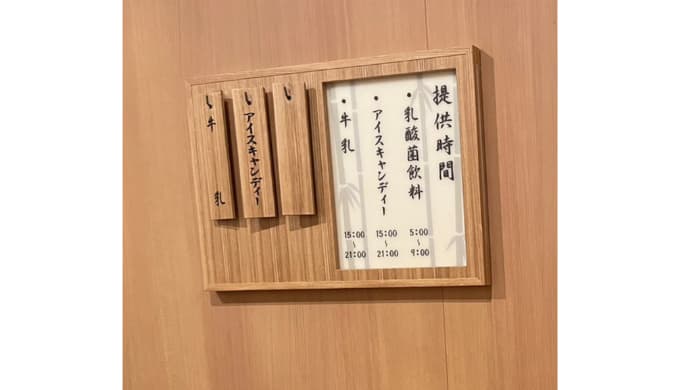 提供時間
・乳酸菌飲料 5:00~9:00
・アイスキャンディー 15:00~21:00
・牛乳 15:00~21:00
アイスキャンディー
牛乳